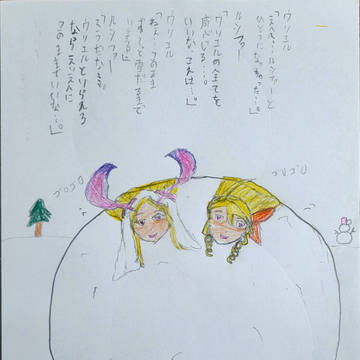 ウリエル
「えへへ、ルシファーと
ひとつになっちゃった…。」
ルシファー
「ウリエルの全てを
感じる…。
いいな、これは…。」
ウリエル
「ねぇ…このまま
ずーっと雪だるまで
いようよ。」
ルシファー
「そうだな…。
ウリエルといられる
なら永遠に
このままでいいな…。」
ゴロゴロ
ゴロゴロ